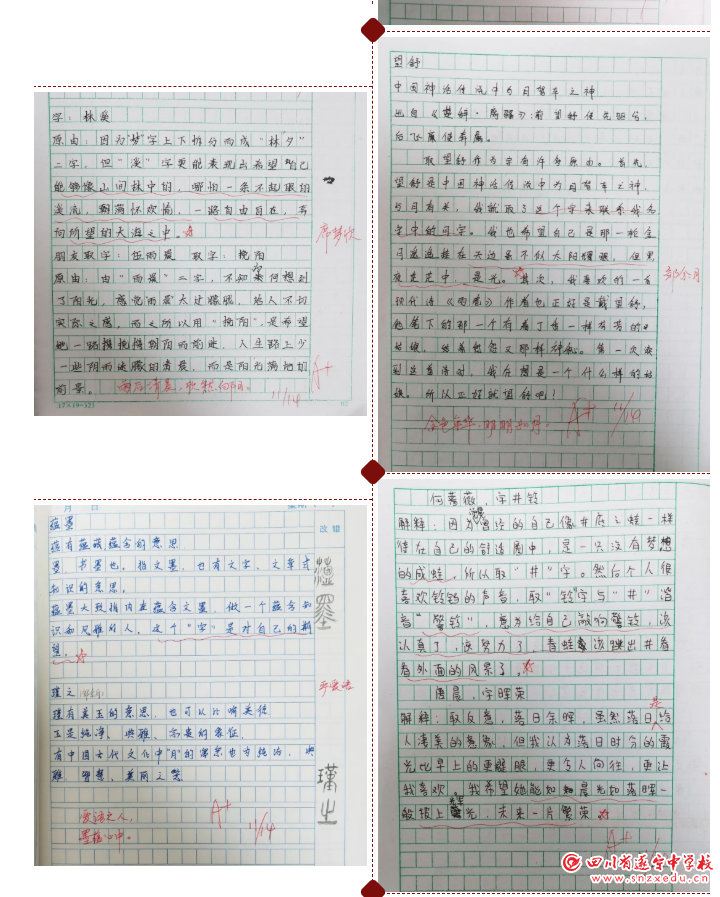 字：林奚
原由：因为"梦"字上下拆分而成"林夕"
二字，但"溪"字更能表现出希望自己
能够像山间林中的，哪怕一条不起眼的
溪流，翻荡怀欢简，一路自由自在，奔
向所望的大海之中。
席梦欣
朋友取字：伍雨晨 取字：挽阳
原由：由"雨晨"二字，不知为何想到
了阳光，感觉雨晨太过朦胧，给人不切
实际之感，而之所以用"挽阳"，是希望
她一路携挽得到阳而前进，人生路上少
一些阴雨迷朦的清晨，而是阳光满地的
前景。
雨后清晨，欣然向阳。
A+
11/14
17×19=323
望舒
中国神话传说中为月驾车之神
出自《楚辞·离骚》：前望舒使先驱兮，
后飞廉使奔属。
取望舒作为字有许多原由。首先，
望舒是中国神话传说中为月驾车之神，
与月有关，我就取了这个字来联系我名
字中的月字。我也希望自己是那一轮金
月遥遥挂在天边虽不似太阳耀眼，但黑
夜茫茫中，是光。其次，我喜欢的一首
现代诗《雨巷》作者也正好是戴望舒，
他笔下的那一个有着丁香一样有芳的
姑娘，结着愁怨又那样神秘。第一次读
到这首诗时，我在想是一个什么样的姑
娘。所以正好就望舒吧！
A+
11/14
蕴墨
蕴有蕴藏蕴含的意思
墨，书墨也，指文墨，也有文字、文章或
知识的意思。
蕴墨大致指内在蕴含文墨，做一个蕴含知
识和风雅的人，这个"字"是对自己的期
望。
瑾之
瑾有美玉的意思，也可以比喻美德
玉是纯净、典雅、高贵的象征
有中国古代文化中"月"的寓意也有纯洁，典
雅，智慧，美丽之类
改错
A+
11/14
墨蕴心中。
何蔷薇，字井铃
解释：因为曾经的自己像井底之蛙一样
待在自己的舒适圈中，是一只没有梦想
的咸蛙，所以取"井"字。然后个人很
喜欢铃铛的声音，取"铃"字与"井"谐
音"警铃"，意为给自己敲响警铃，该
认真了，该努力了，青蛙该跳出井看
看外面的风景了。
唐晨，字晖英
解释：取反意，落日余晖，虽然落日是给
人凄美的意象，但我认为落日时分的霞
光比早上的更耀眼，更令人向往，更让
我喜欢，我希望她能如晨光如落晖一
般披上霞光，未来一片繁荣
A+
四川省遂宁中学校
www.snzxedu.cn